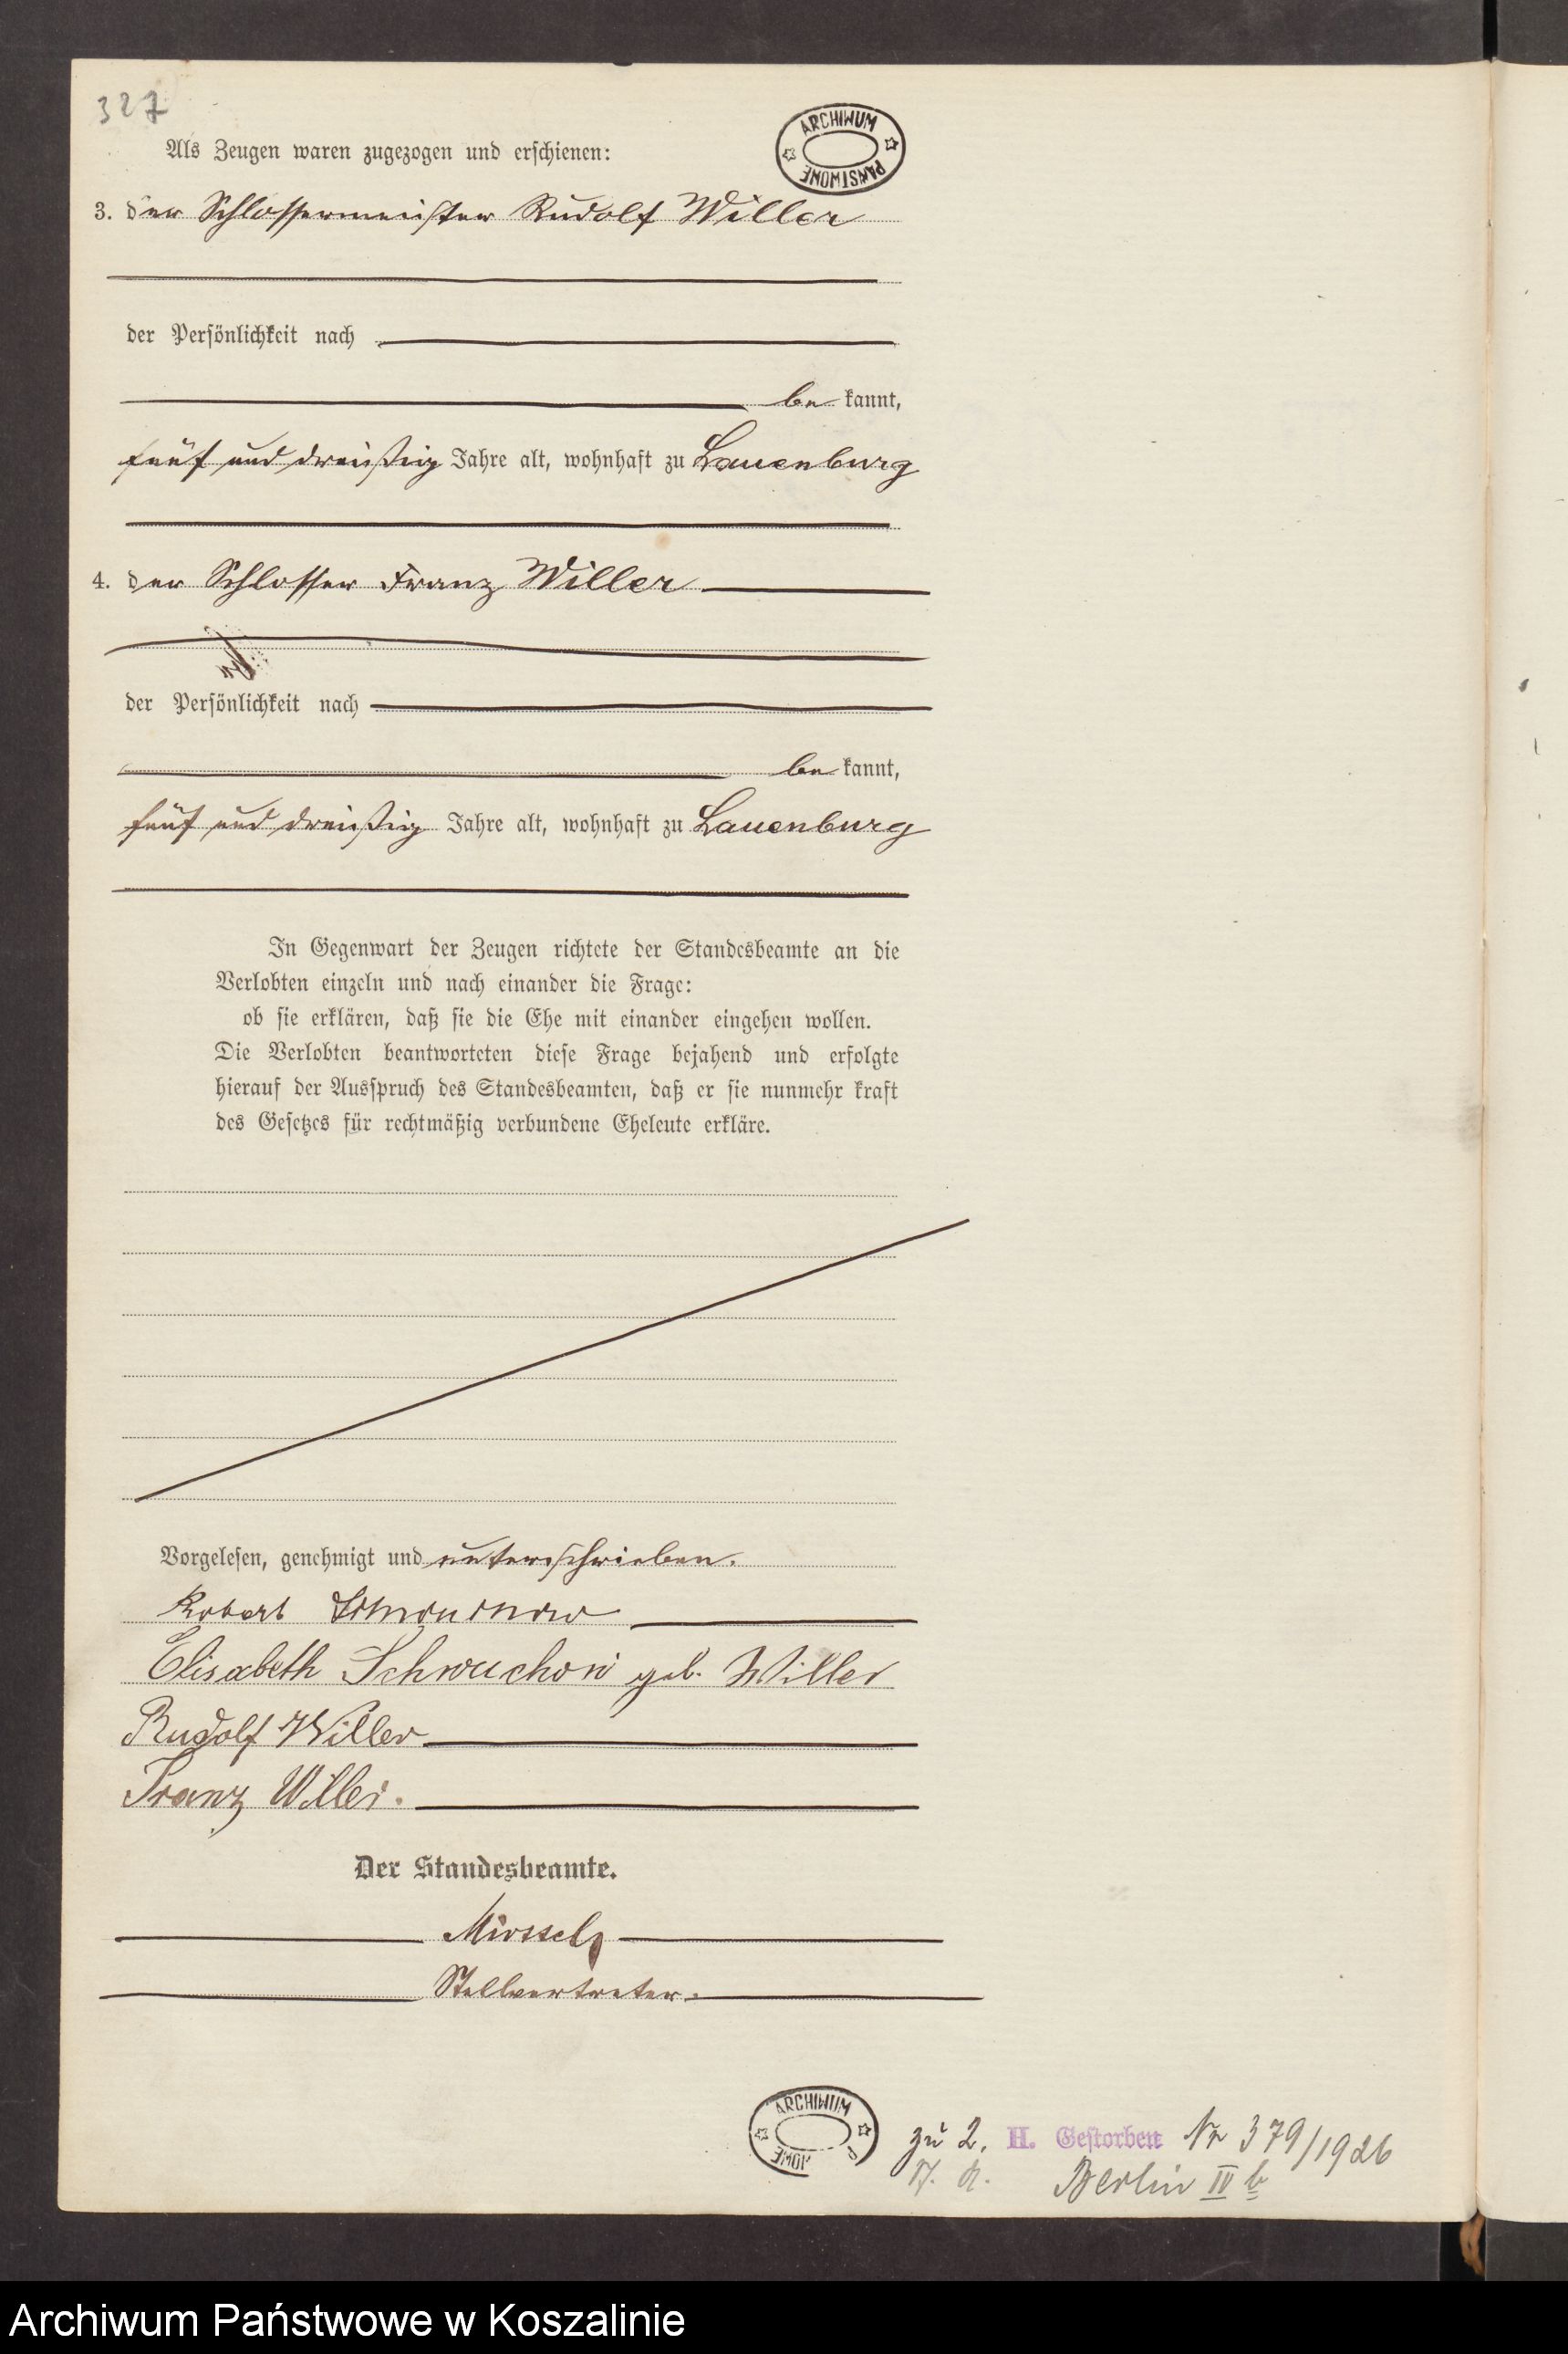 327
Als Zeugen waren zugezogen und erschienen:
ARCHIWUM PAŃSTWOWE
3. der Schlossermeister Rudolf Willer
der Persönlichkeit nach
be kannt,
fünf und dreißig Jahre alt, wohnhaft zu Lauenburg
4. der Schlosser Franz Willer
der Persönlichkeit nach
be kannt,
fünf und dreißig Jahre alt, wohnhaft zu Lauenburg
In Gegenwart der Zeugen richtete der Standesbeamte an die
Verlobten einzeln und nach einander die Frage:
ob sie erklären, daß sie die Ehe mit einander eingehen wollen.
Die Verlobten beantworteten diese Frage bejahend und erfolgte
hierauf der Ausspruch des Standesbeamten, daß er sie nunmehr kraft
des Gesetzes für rechtmäßig verbundene Eheleute erkläre.
Vorgelesen, genehmigt und unterschrieben.
Robert
Elisabeth Schwuchow geb. Willer
Rudolf Willer
Franz Willer.
Der Standesbeamte.
Stellvertreter.
ARCHIWUM
zu 2. H. Gestorben Nr 379/1926
Berlin IV b
Archiwum Państwowe w Koszalinie